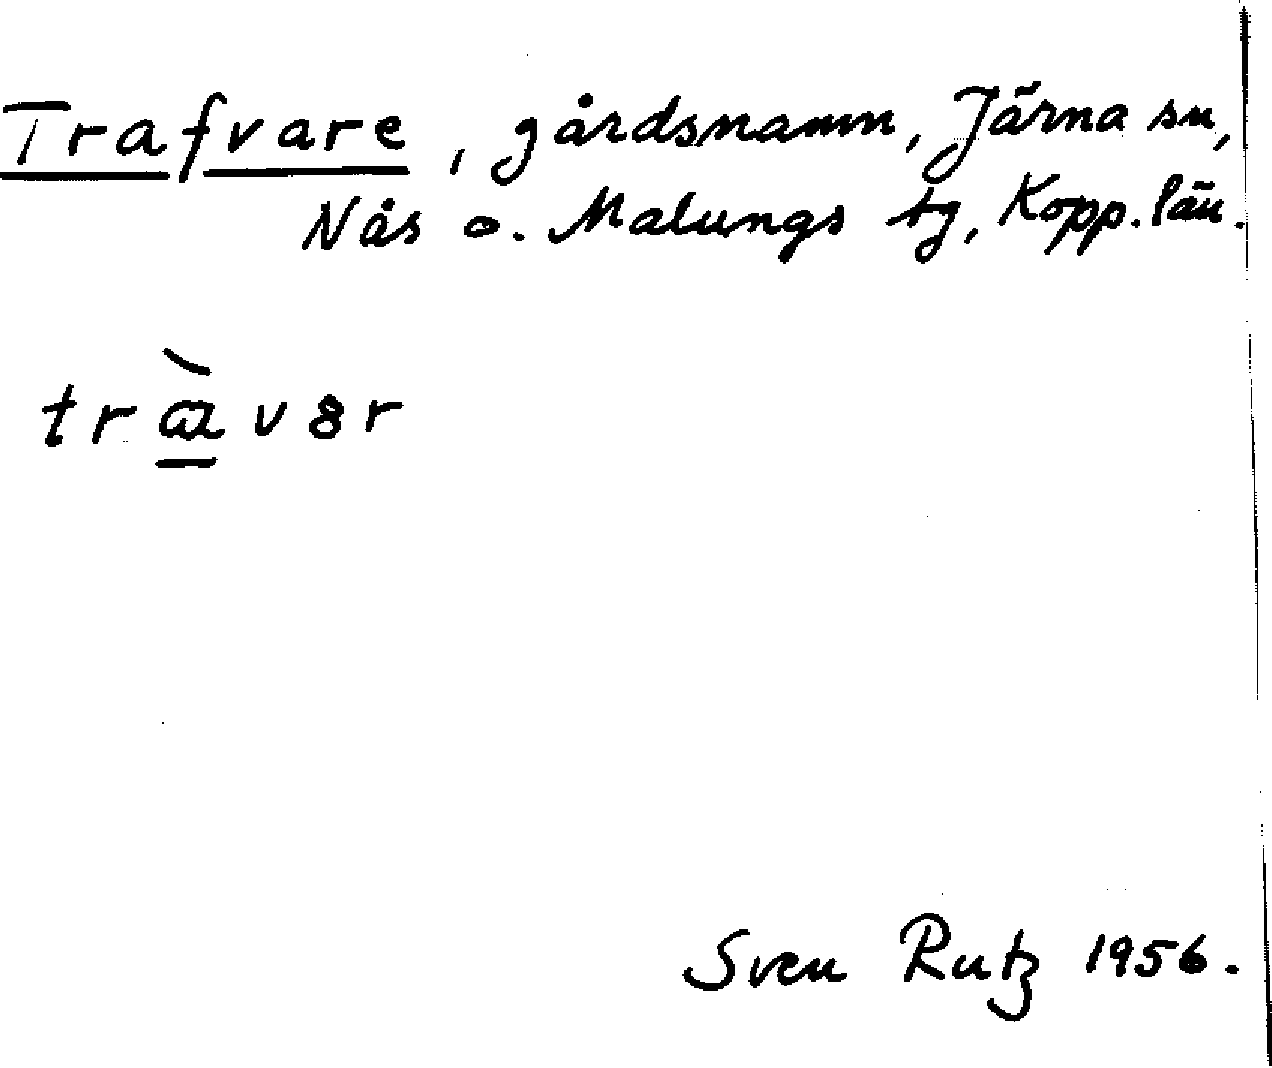 Trafvare, gårdsnamn, Järna sn,
Nås o. Malungs tg, Kopp. län.
træ̀v8r
Sven Rutz 1956.